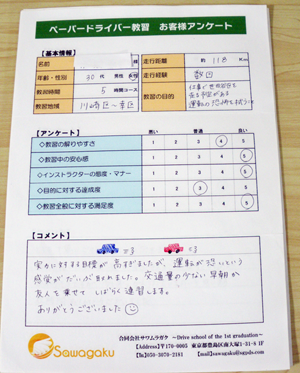 ペーパードライバー教習　お客様アンケート
【基本情報】
名前 様 走行距離 約 118 Km
年齢・性別 30代 男性 女性 走行経験 数回
教習時間 5 時間コース 教習の目的
教習地域 川崎区〜幸区 運転の恐怖を拭う
【アンケート】 悪い 普通 良い
◇教習の解りやすさ 1 2 3 4 5
◇教習中の安心感 1 2 3 4 5
◇インストラクターの態度・マナー 1 2 3 4 5
◇目的に対する達成度 1 2 3 4 5
◇教習全般に対する満足度 1 2 3 4 5
【コメント】
実力に対する目標が高すぎましたが、運転が恐いという
感覚がだいぶ拭えました。交通量の少ない早朝か
友人を乗せてしばらく練習します。
ありがとうございました
Sawagaku
合同会社サワムラガク 〜Drive school of the 1st graduation〜
【Address】〒170-0005 東京都豊島区南大塚1-31-8 1F
【Tel】050-3070-2181 【Mail】sawagaku@sgads.com